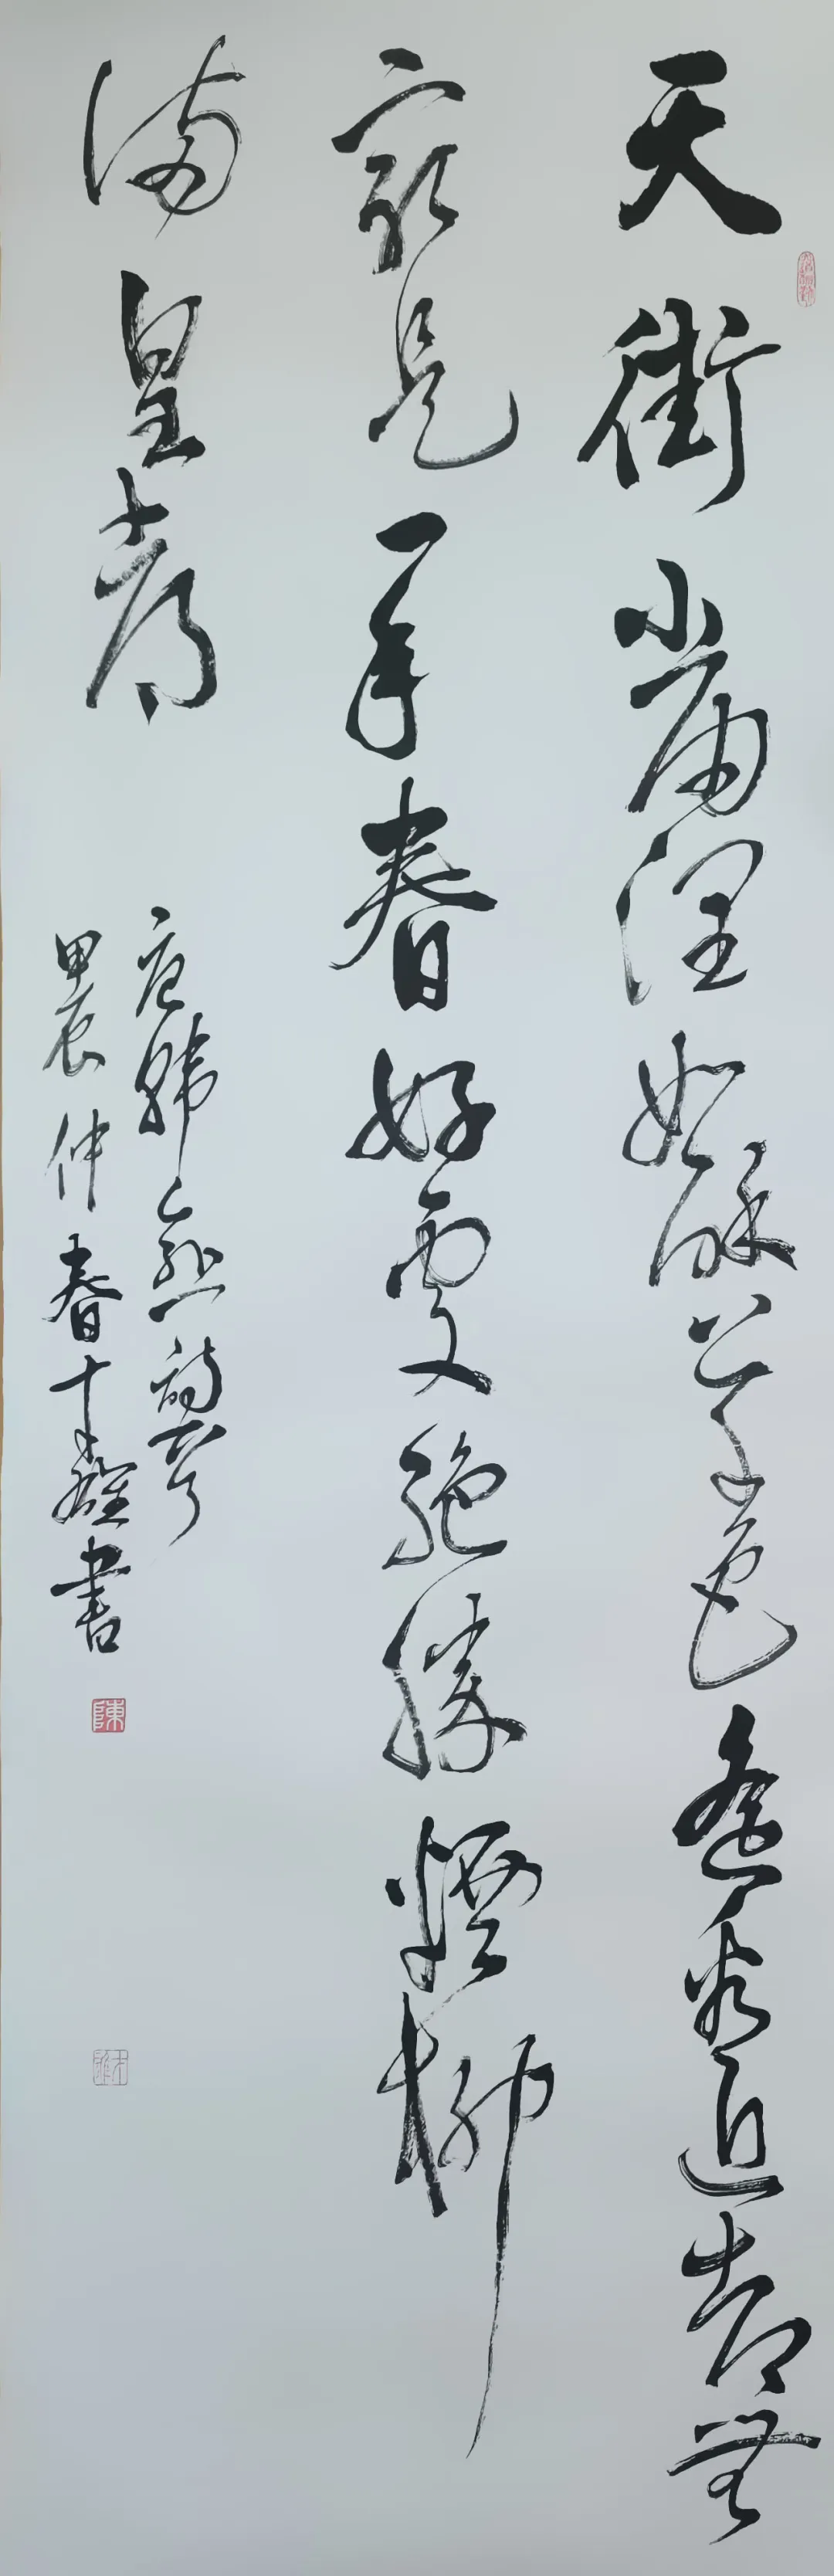 天街小雨潤如酥草色遙看近却無
最是一年春好處絕勝煙柳
滿皇都
唐韓愈詩一首
甲辰仲春才雄書
陳
才雄